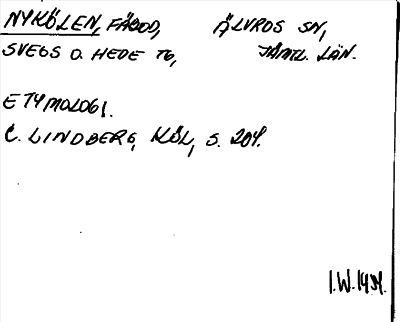 NYKÖLEN, FÄBOD, ÄLVROS SN,
SVEGS O. HEDE TG, JÄMTL. LÄN.
ETYMOLOGI.
C. LINDBERG, KÖL, S. 204.
I.W. 1934.